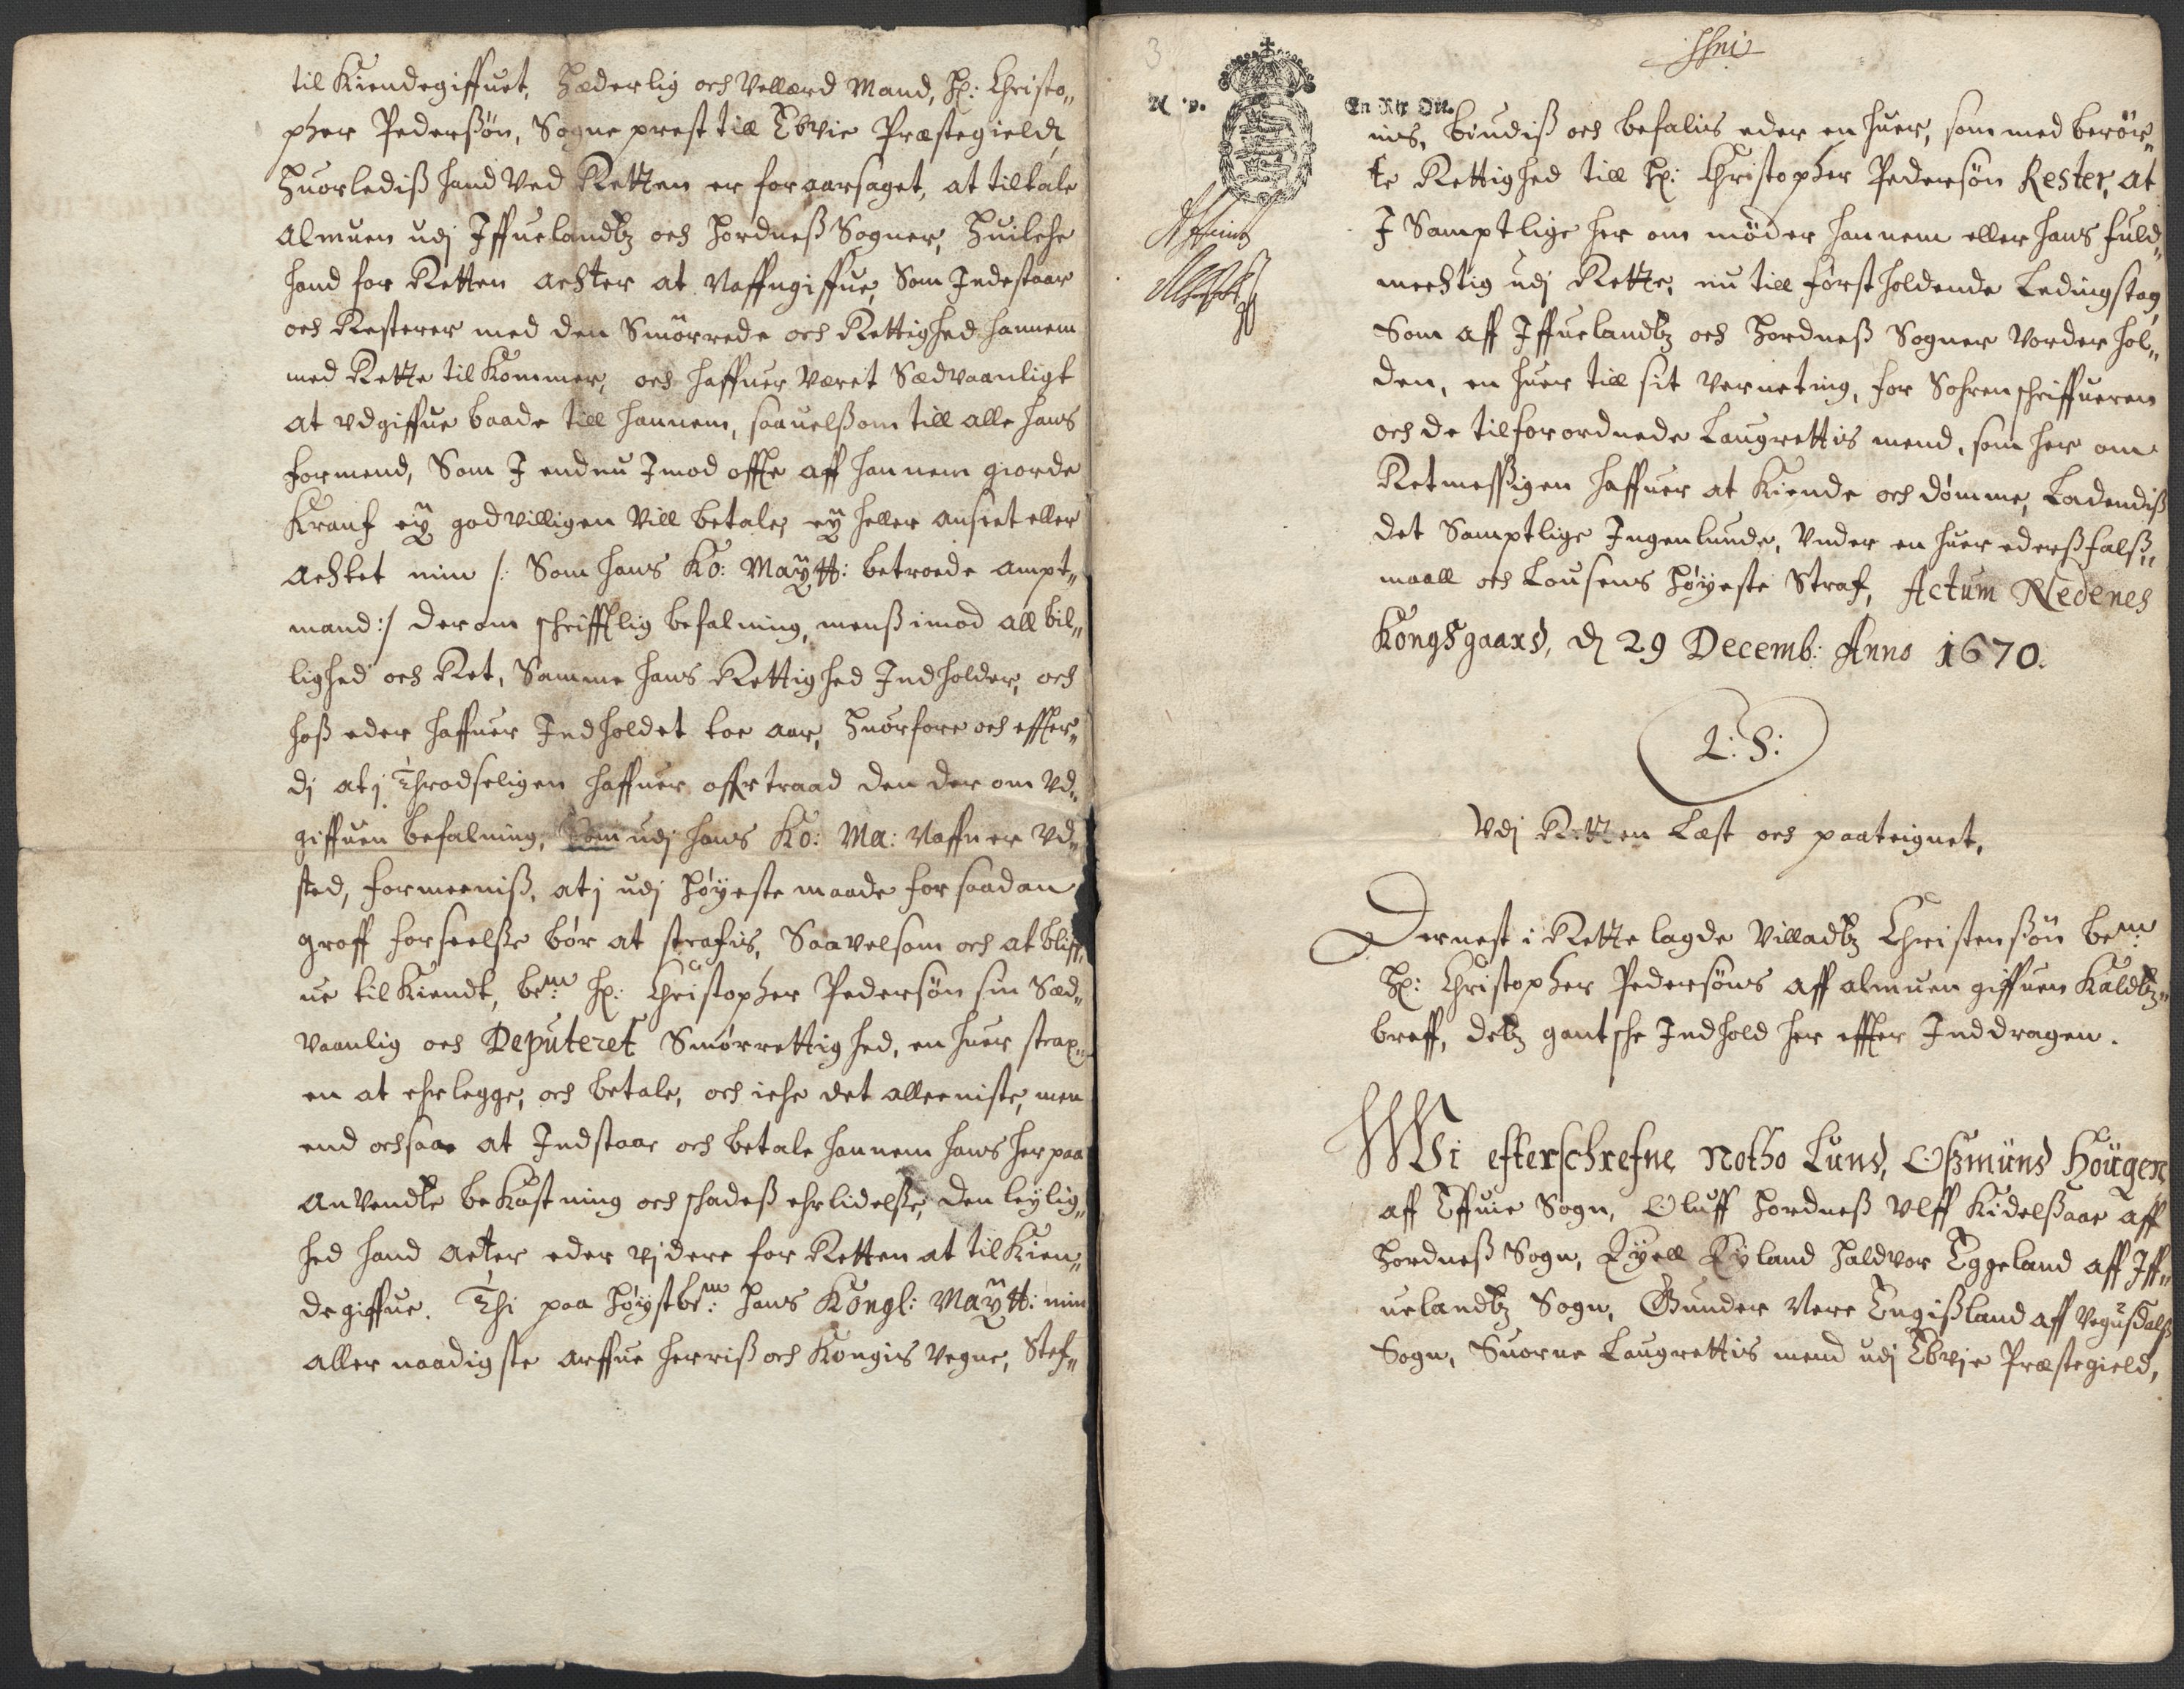 til Kiendegiffuet, Hæderlig och Vellærd Mand, Hr: Christo„
pher Pederßön, Sogne prest till Ebvie Præstegield,
Huorlediß hand Ved Retten er foraarsaget, at tiltale
Almuen udj Iffuelandtz och Hordneß Sogner, Huilche
hand for Retten achter at Naffngiffue, Som Indestaar
och Resterer med den Smörrede och Rettighed hannem
med Rette til Kommer, och haffuer Været Sædvaanligt
at vdgiffue baade till hannem, saauelßom till alle hans
formend, Som I endnu Imod offte aff hannem giorde
Kranf eÿ godvilligen Vill betale, eÿ heller anseet eller
Achtet min /: Som hans Ko: Maÿtt: betroede Ampt„
mand :/ derom schrifftlig befalning, menß imod all bil„
lighed och Ret, Samme hans Rettighed Indholder, och
hoß eder haffuer Indholdet toe aar, Huorfore och effter„
dj at j Throdseligen haffuer offrtraad den der om vd„
giffuen befalning, Som udj hans Ko: Ma: Naffn er vd„
sted, formeeniß, at j udj Höÿeste maade for saadan
groff forseelße bör at strafis, Saavelsom och at bliff„
ue til Kiendt, bem:te Hr: Christopher Pedersön sin Sæd„
vaanlig och Deputeret Smörrettighed, en huer strax„
en at ehrlegge, och betale, och iche det alleeniste, men
end ochsaa at Indstaae och betale hannem hans her paa
anvendte bekostning och schadeß ehrlidelße, den leÿlig„
hed hand acter eder vjdere for Retten at tilkien„
degiffue. Thi paa Höÿstbem:te Hans Kongl: Maÿtt: min
aller naadigste arffue herriß och Kongis vegne, Stef„
3
En Rtr Ort.
nis, biudiß och befalis eder en huer, som med berör„
te Rettighed till Hr: Christopher Pedersön Rester, at
I Samptlige her om möder hannem eller hans fuld„
mechtig udj Rette, nu till först holdende Ledingstog,
Som aff Iffuelandtz och Hordneß Sogner vorder hol„
den, en huer till sit verneting, for Sohrenschriffueren
och de tilforordnede Laugrettis mend, som her om
Retmeßigen haffuer at Kiende och dömme, Ladendiß
det Samptlige Ingenlunde, Vnder en huer ederß falß„
maall och Lousens Höÿeste Straf, Actum Nedenes
Kongsgaard, d 29 Decemb: Anno 1670.
L: S:
Vdj Retten Læst och paateignet,
Dernest i Rette lagde Villadtz Christenßön bem:te
Hr: Christopher Pedersöns aff almuen giffuen Kaldtz„
breff, detz gantsche Indhold her effter Inddragen.
Wi efterschrefne Notho Lund, Oßmund Hougen,
aff Effuie Sogn, Oluff Hordneß Vlff Kidelßaae aff
Hordneß Sogn, Kÿell Rÿland Haldvor Eggeland aff Iff„
uelandtz Sogn, Gunder Vere Engißland aff Vegußdalß
Sogn, Suorne Laugrettis mend udj Ebvje Præstegield,